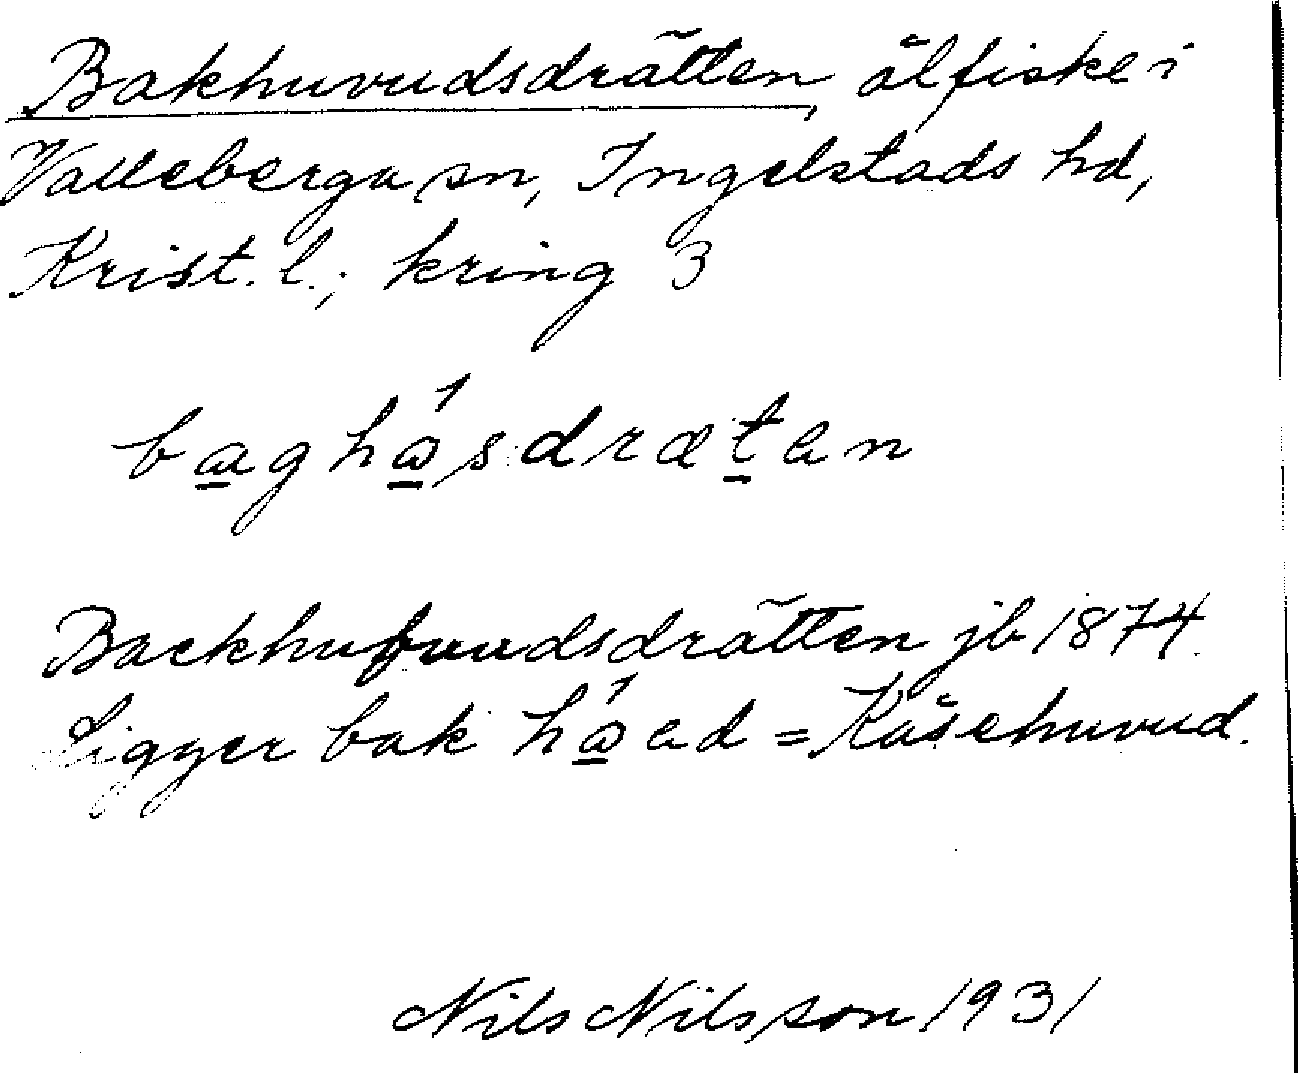 Bakhuvudsdrätten, ålfiske i
Valleberga sn, Ingelstads hd,
Krist. l.; kring 3
baghásdrætan
Backhufvudsdrätten jb 1874.
Ligger bak háad = Kåsehuvud.
Nils Nilsson 1931